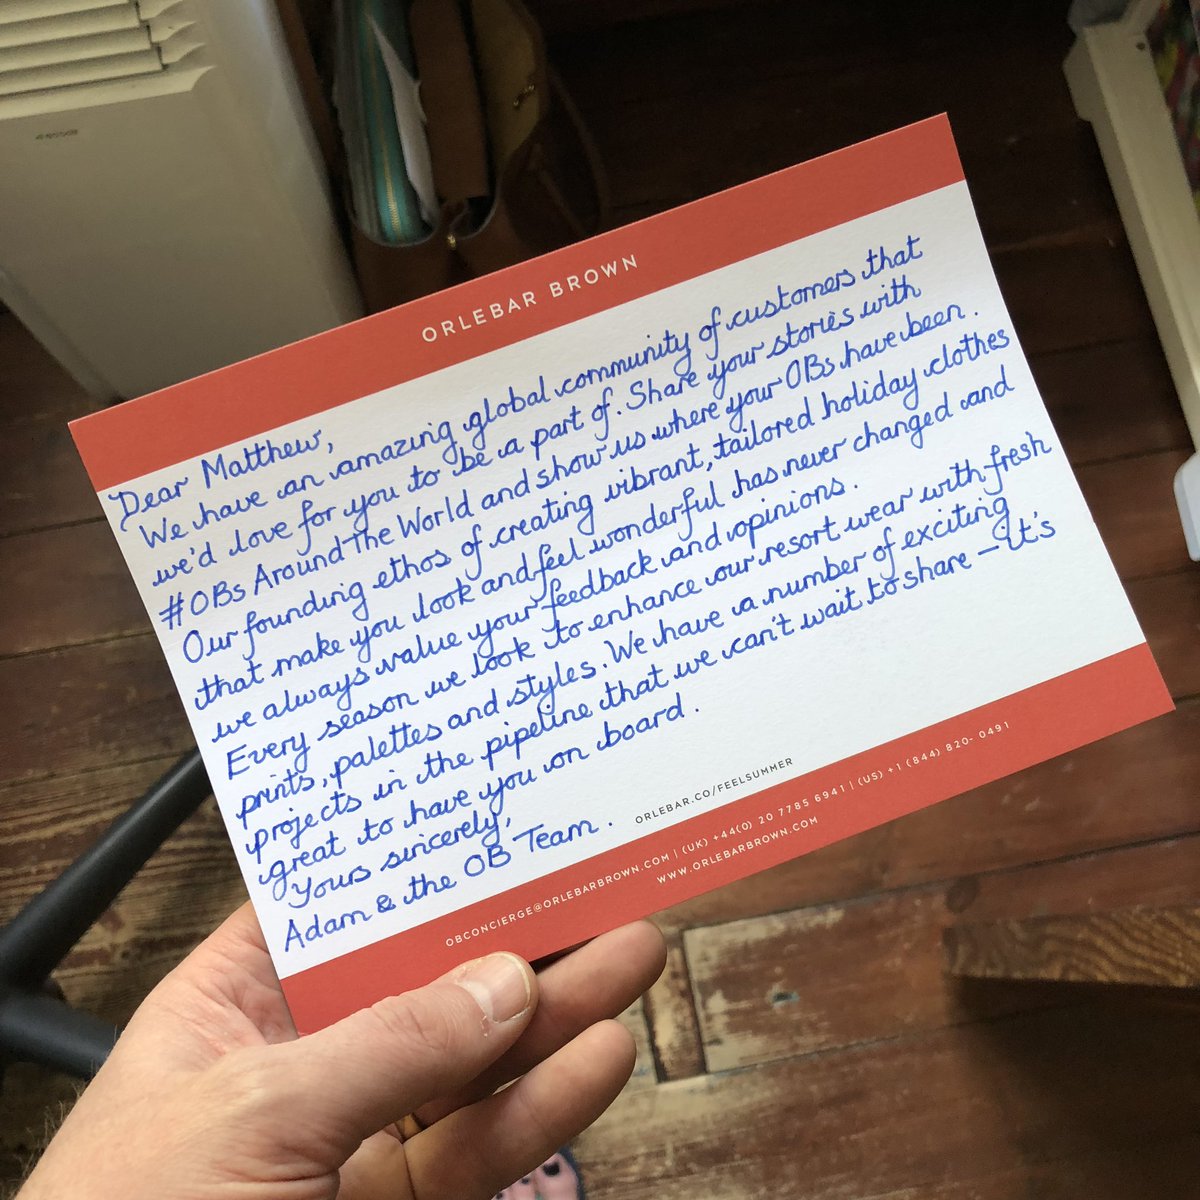 ORLEBAR BROWN
Dear Matthew,
We have an amazing global community of customers that
we'd love for you to be a part of. Share your stories with
#OBs Around The World and show us where your OBs have been.
Our founding ethos of creating vibrant, tailored holiday clothes
that make you look and feel wonderful has never changed and
we always value your feedback and opinions.
Every season we look to enhance our resort wear with fresh
prints, palettes and styles. We have a number of exciting
projects in the pipeline that we can't wait to share – it's
great to have you on board.
Yours sincerely,
Adam & the OB Team.
ORLEBAR.CO/FEELSUMMER
OBCONCIERGE@ORLEBARBROWN.COM | (UK) +44(0) 20 7785 6941 | (US) +1 (844) 820- 0491
WWW.ORLEBARBROWN.COM